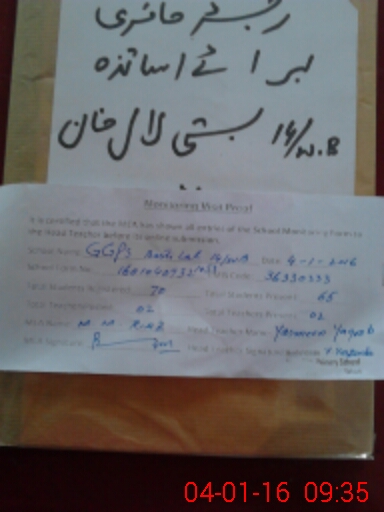 رجسٹر حاضری
برائے اساتذہ
بستی لال خان 14/W.B
Monitoring Visit Proof
It is certified that the MEA has shown all entries of the School Monitoring Form to
the Head Teacher before its online submission.
School Name: GGPS Basti Lal 14/WB Date: 4-1-2016
School Form No. School Code: 36330333
Total Students Registered: 70 Total Students Present: 65
Total Teachers: 02 02
MEA Name: Head Teacher Name: Yasmeen
MEA Signature: Head Teacher Signature
04-01-16 09:35